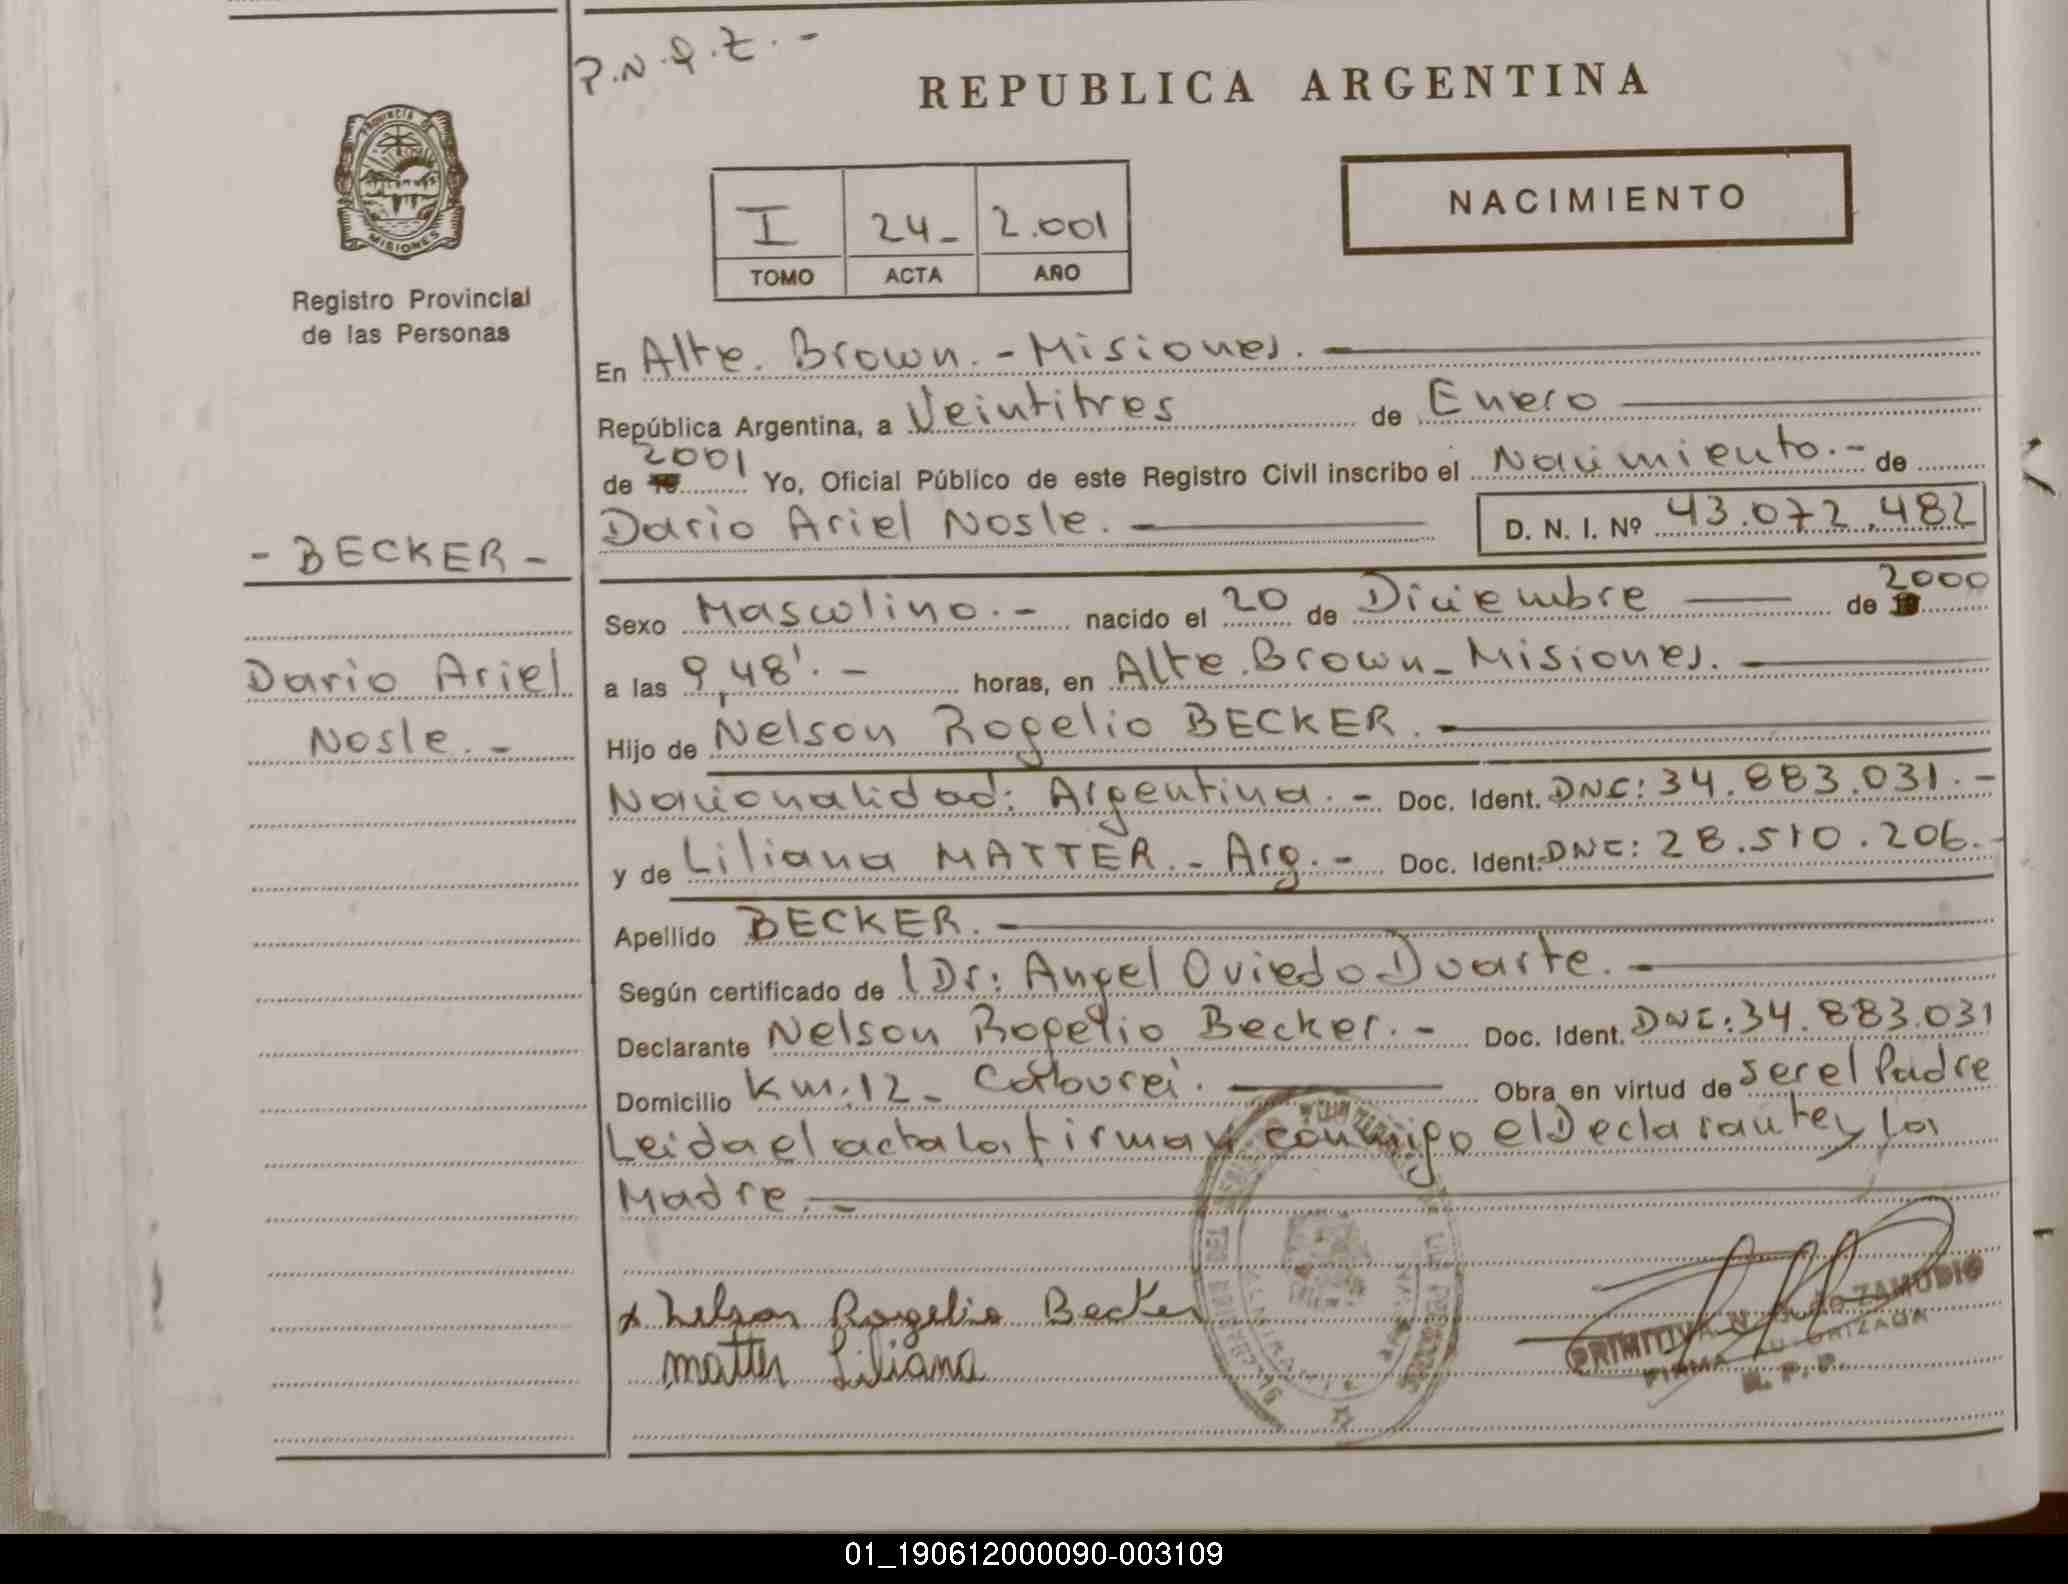 P.N.Q.Z.-
REPUBLICA ARGENTINA
PROVINCIA DE
MISIONES
Registro Provincial
de las Personas
NACIMIENTO
I 24- 2.001
TOMO ACTA AÑO
En Alte. Brown.-Misiones.
República Argentina, a Veintitres de Enero
de 2001 Yo, Oficial Público de este Registro Civil inscribo el Nacimiento.- de
Dario Ariel Nosle. D. N. I. Nº 43.072.482
- BECKER -
Sexo Masculino.- nacido el 20 de Diciembre de 2000
Dario Ariel
Nosle.-
a las 9,48'.- horas, en Alte.Brown-Misiones.
Hijo de Nelson Rogelio BECKER.
Nacionalidad: Argentina.- Doc. Ident. DNI: 34.883.031.-
y de Liliana MATTER.- Arg.- Doc. Ident. DNI: 28.510.206.-
Apellido BECKER.
Según certificado de Dr: Angel Oviedo Duarte.
Declarante Nelson Rogelio Becker.- Doc. Ident. DNI: 34.883.031
Domicilio Km:12- Obra en virtud de ser el Padre
Leida el acta la firman conmigo el Declarante y la
Madre.-
x Nelson Rogelio Becker
matter Liliana
PRIMITIVA ZAMUDIO
FIRMA AUTORIZADA
R. P. P.
01_190612000090-003109